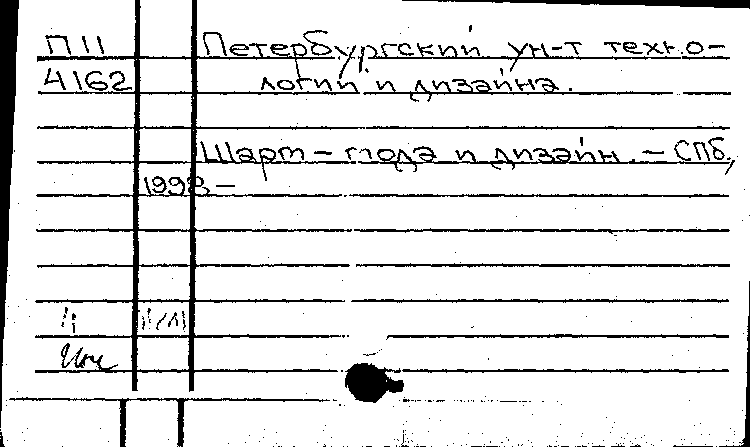 П11 Петербургский ун-т техно-
4162 логий и дизайна.
Шарм – мода и дизайн. – СПб,
1998 –